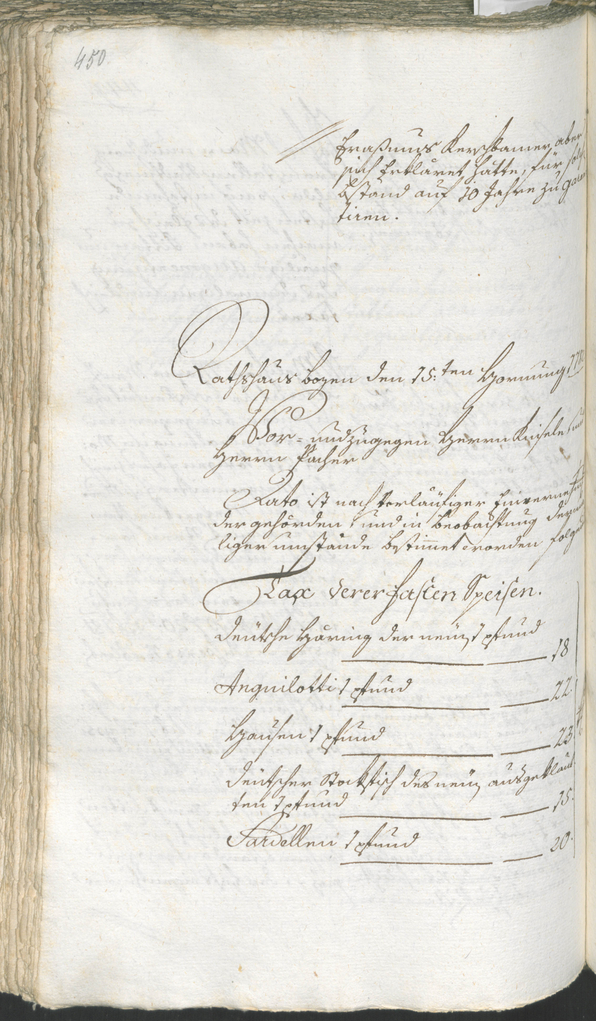 450.
Erasmus Kerschbamer, aber
sich erkläret hatte, für
bstand auf 10 Jahre zu garan
tiren.
Rathshaus Bozen den 15.ten Hornung
Vor- und zugegen Herrn Kuisele und
Herrn Pacher
Dato ist nach vorläufiger Einverneh
der gehörden und in beobachtung
liger umstände bestimmet worden folgen
Tax derer fasten Speisen.
deutsche Häring der neuen 1 pfund
18
Anguilotti 1 pfund
22
Hausen 1 pfund
23
deutscher Stockfisch des neuen ausgeklaub
ten 1 pfund
15
Sardellen 1 pfund
20.